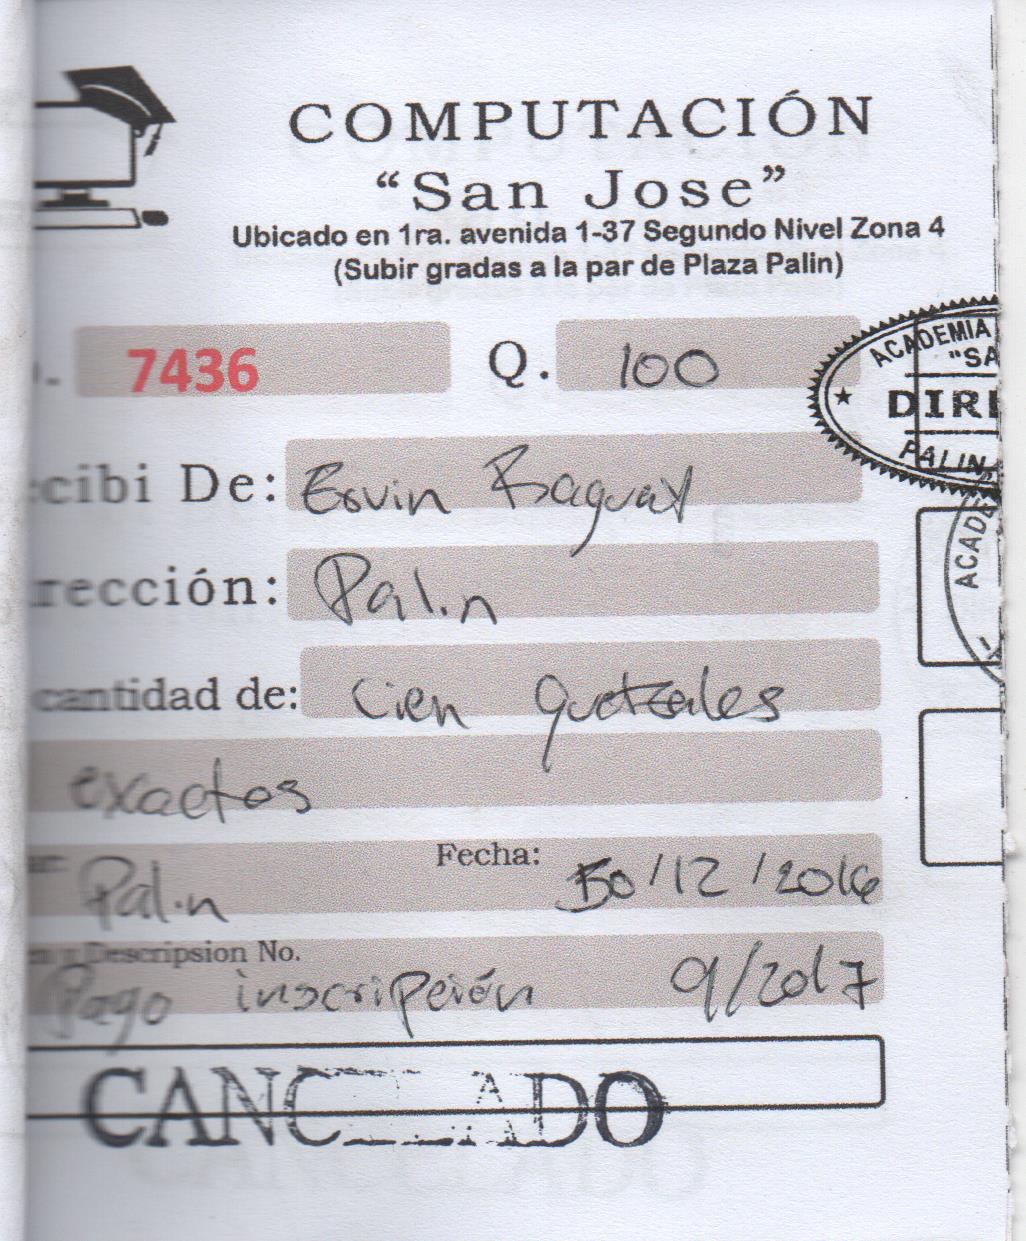 COMPUTACIÓN
“San Jose”
Ubicado en 1ra. avenida 1-37 Segundo Nivel Zona 4
(Subir gradas a la par de Plaza Palin)
. 7436 Q. 100
ACADEMIA
"SA
DIRE
PALIN,
cibi De: Ervin
ACADE
rección: Palin
cantidad de: Cien quetzales
exactos
Palin Fecha: 30/12/2016
Descripsion No.
Pago inscripción 9/2017
CANCELADO